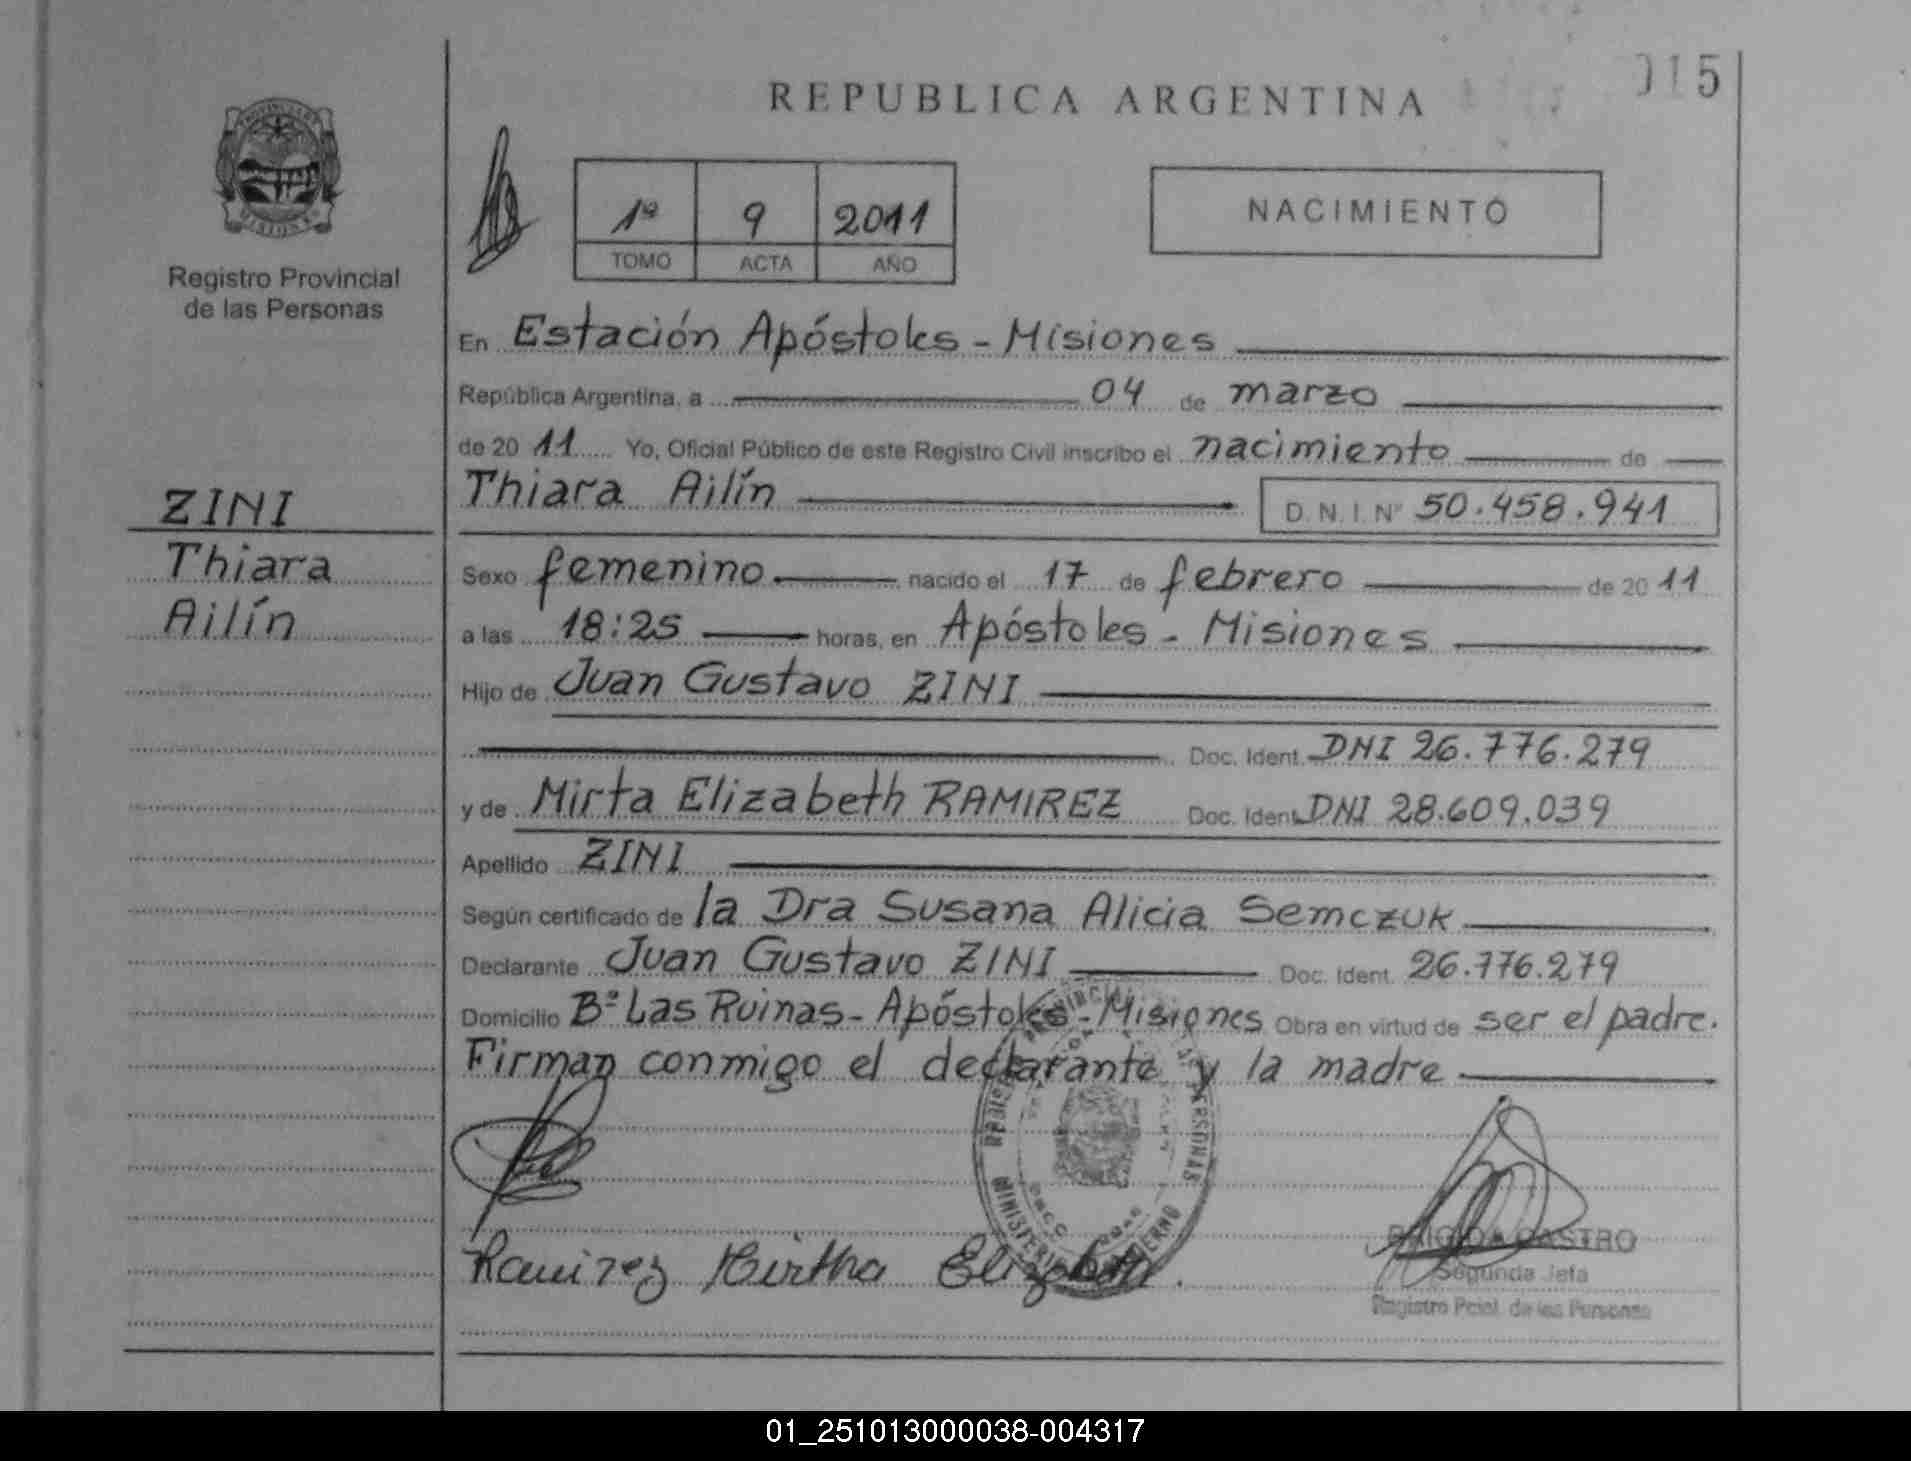 015
REPUBLICA ARGENTINA
1º 9 2011
TOMO ACTA AÑO
NACIMIENTO
Registro Provincial
de las Personas
ZINI
Thiara
Ailín
En Estación Apóstoles - Misiones
República Argentina, a 04 de marzo
de 20 11 Yo, Oficial Público de este Registro Civil inscribo el nacimiento de
Thiara Ailín D.N.I. Nº 50.458.941
Sexo femenino nacido el 17 de febrero de 20 11
a las 18:25 horas, en Apóstoles - Misiones
Hijo de Juan Gustavo ZINI
Doc. Ident. DNI 26.776.279
y de Mirta Elizabeth RAMIREZ Doc. Ident. DNI 28.609.039
Apellido ZINI
Según certificado de la Dra Susana Alicia Semczuk
Declarante Juan Gustavo ZINI Doc. Ident. 26.776.279
Domicilio Bº Las Ruinas - Apóstoles - Misiones Obra en virtud de ser el padre.
Firman conmigo el declarante y la madre
Ramirez Mirtha
BRIGIDA CASTRO
Segunda Jefa
Registro Pcial. de las Personas
01_251013000038-004317